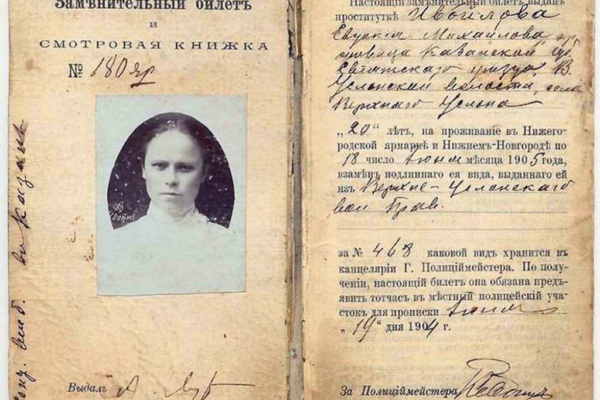 Замѣнительный билетъ
и
СМОТРОВАЯ КНИЖКА
№ 180 яр
Выдалъ
Настоящій замѣнительный билетъ выданъ
проституткѣ
Евдокія Михайлова
Казанской губ.
уѣзда, В.
Услонской волости, села
Верхняго Услона
„20" лѣтъ, на проживаніе въ Нижего-
родской ярмаркѣ и Нижнемъ-Новгородѣ по
18 число Іюня мѣсяца 1905 года,
взамѣнъ подлиннаго ея вида, выданнаго ей
изъ Верхне-Услонскаго
вол. Прав.
за № 468 каковой видъ хранится въ
канцеляріи Г. Полиціймейстера. По полу-
ченіи, настоящій билетъ она обязана предъ-
явить тотчасъ въ мѣстный полицейскій уча-
стокъ для прописки Іюня
„19" дня 1904 г.
За Полиціймейстера